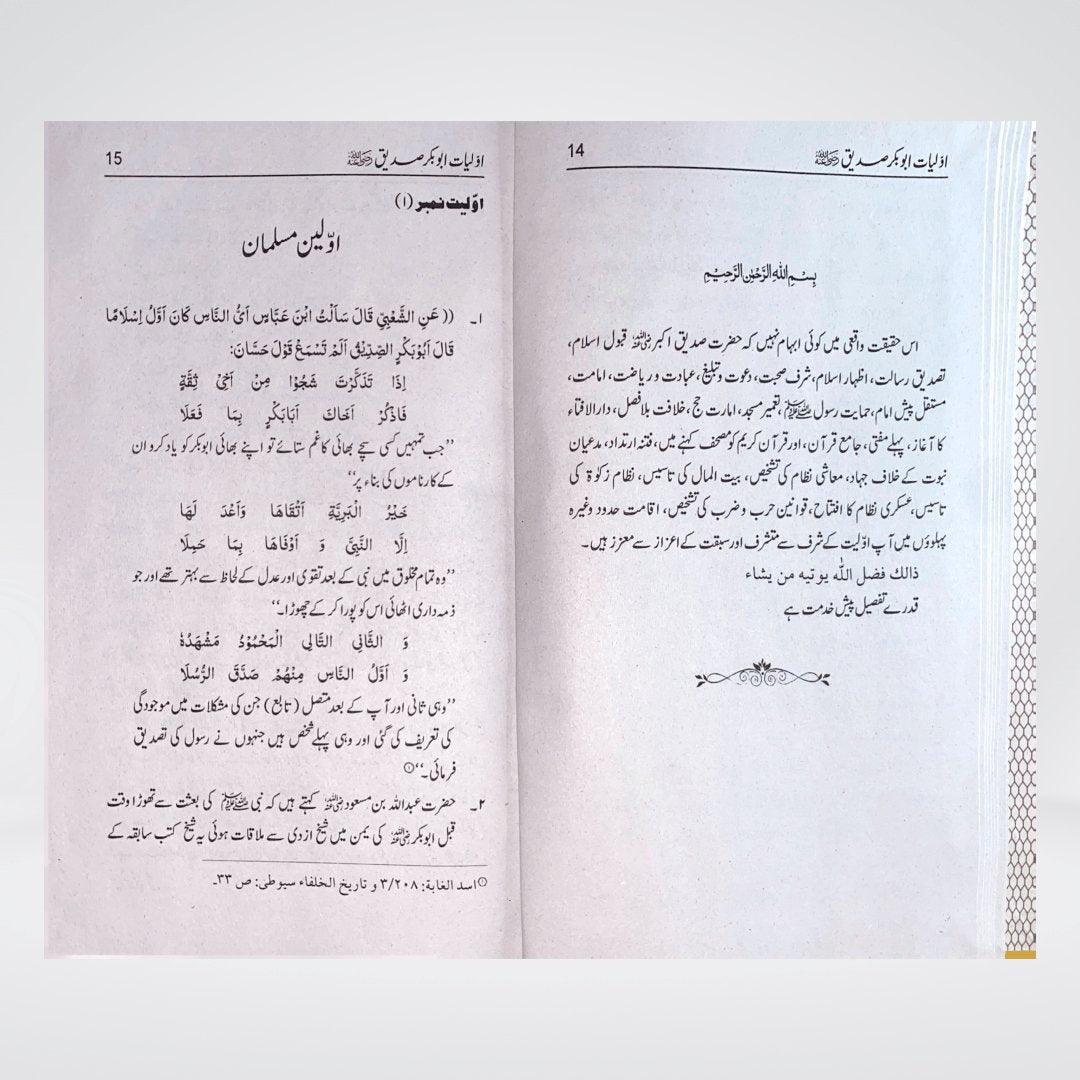 اوّلیات ابوبکر صدیق رضی اللہ عنہ 14
بِسْمِ اللهِ الرَّحْمٰنِ الرَّحِيْمِ
اس حقیقت واقعی میں کوئی ابہام نہیں کہ حضرت صدیق اکبر رضی اللہ عنہ قبول اسلام،
تصدیق رسالت، اظہار اسلام، شرف صحبت، دعوت و تبلیغ، عبادت و ریاضت، امامت،
مستقل پیش امام، حمایت رسول ﷺ، تعمیر مسجد، امارت حج، خلافت بلافصل، دارالافتاء
کا آغاز، پہلے مفتی، جامع قرآن، اور قرآن کریم کو مصحف کہنے میں، فتنہ ارتداد، مدعیان
نبوت کے خلاف جہاد، معاشی نظام کی تشخیص، بیت المال کی تاسیس، نظام زکوٰۃ کی
تاسیس، عسکری نظام کا افتتاح، قوانین حرب و ضرب کی تشخیص، اقامت حدود وغیرہ
پہلوؤں میں آپ اوّلیت کے شرف سے متشرف اور سبقت کے اعزاز سے معزز ہیں۔
ذالك فضل الله يوتيه من يشاء
قدرے تفصیل پیش خدمت ہے
اوّلیات ابوبکر صدیق رضی اللہ عنہ 15
اوّلیت نمبر (۱)
اوّلین مسلمان
۱۔ (( عَنِ الشَّعْبِيِّ قَالَ سَأَلْتُ ابْنَ عَبَّاسٍ اَيُّ النَّاسِ كَانَ اَوَّلُ اِسْلَامًا
قَالَ اَبُوْبَكْرٍ الصِّدِّيْقُ اَلَمْ تَسْمَعْ قَوْلَ حَسَّانَ:
اِذَا تَذَكَّرْتَ شَجْوًا مِنْ اَخِيْ ثِقَةٍ
فَاذْكُرْ اَخَاكَ اَبَابَكْرٍ بِمَا فَعَلَا
”جب تمہیں کسی سچے بھائی کا غم ستائے تو اپنے بھائی ابوبکر کو یاد کرو ان
کے کارناموں کی بناء پر“
خَيْرُ الْبَرِيَّةِ اَتْقَاهَا وَاَعْدَ لَهَا
اِلَّا النَّبِيَّ وَ اَوْفَاهَا بِمَا حَمِلَا
”وہ تمام مخلوق میں نبی کے بعد تقوی اور عدل کے لحاظ سے بہتر تھے اور جو
ذمہ داری اٹھائی اس کو پورا کر کے چھوڑا۔“
وَ الثَّانِي التَّالِي الْمَحْمُوْدُ مَشْهَدُهٗ
وَ اَوَّلُ النَّاسِ مِنْهُمْ صَدَّقَ الرُّسُلَا
”وہی ثانی اور آپ کے بعد متصل (تابع) جن کی مشکلات میں موجودگی
کی تعریف کی گئی اور وہی پہلے شخص ہیں جنہوں نے رسول کی تصدیق
فرمائی۔“①
۲۔ حضرت عبداللہ بن مسعود رضی اللہ عنہ کہتے ہیں کہ نبی ﷺ کی بعثت سے تھوڑا وقت
قبل ابوبکر رضی اللہ عنہ کی یمن میں شیخ ازدی سے ملاقات ہوئی یہ شیخ کتب سابقہ کے
①اسد الغابة: ۳/۲۰۸ و تاریخ الخلفاء سیوطی: ص ۳۳۔